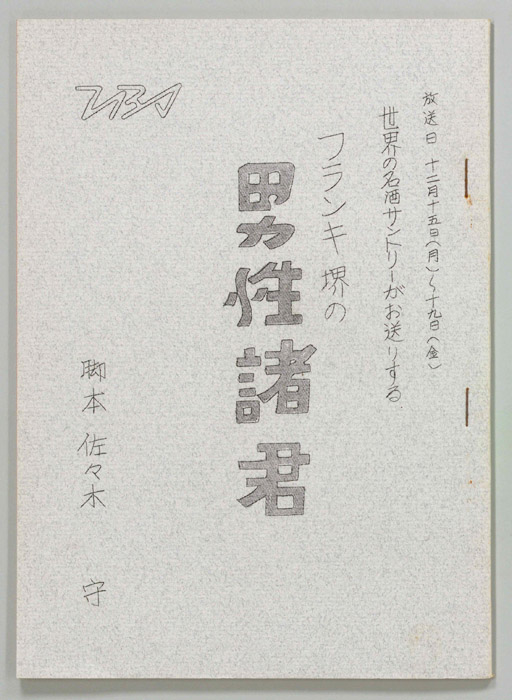 放送日 十二月十五日(月)〜十九日(金)
世界の名酒サントリーがお送りする
フランキ堺の
男性諸君
脚本 佐々木 守
TBS